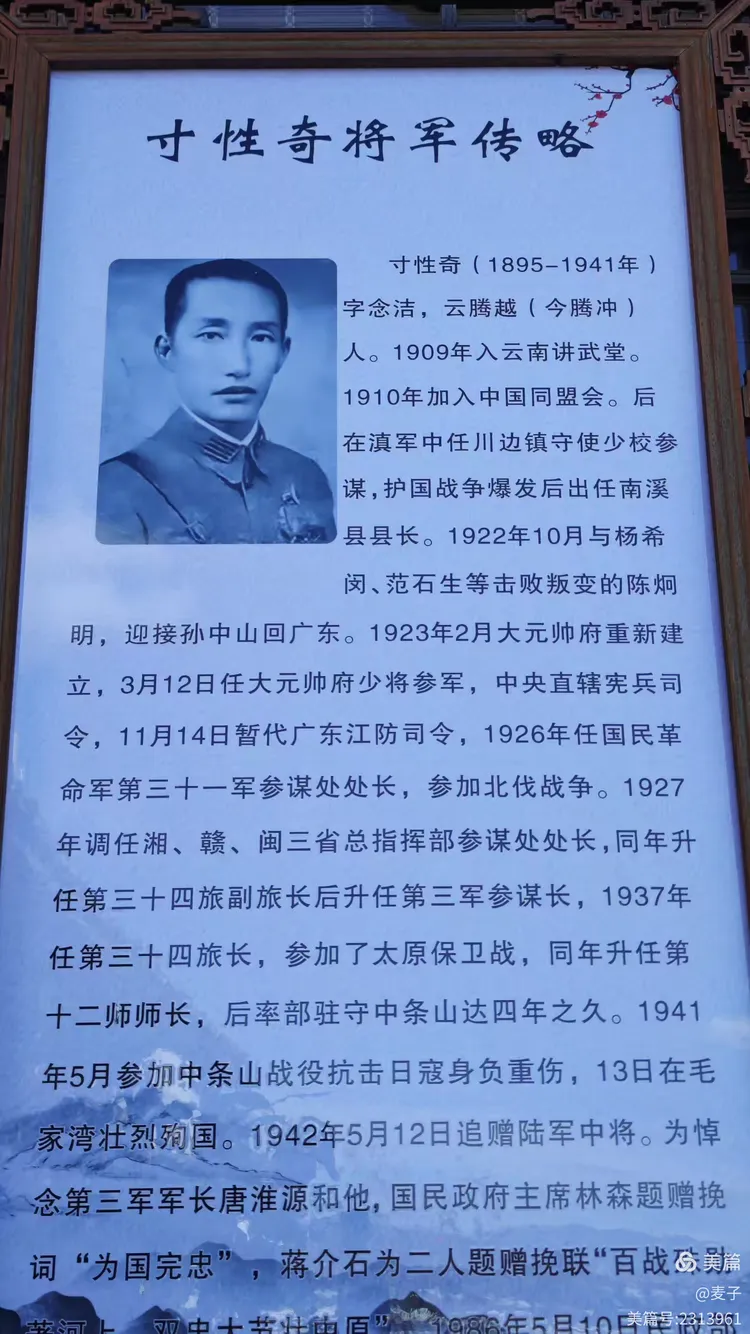 寸性奇将军传略
寸性奇（1895-1941年）
字念洁，云腾越（今腾冲）
人。1909年入云南讲武堂。
1910年加入中国同盟会。后
在滇军中任川边镇守使少校参
谋,护国战争爆发后出任南溪
县县长。1922年10月与杨希
闵、范石生等击败叛变的陈炯
明，迎接孙中山回广东。1923年2月大元帅府重新建
立，3月12日任大元帅府少将参军，中央直辖宪兵司
令，11月14日暂代广东江防司令，1926年任国民革
命军第三十一军参谋处处长，参加北伐战争。1927
年调任湘、赣、闽三省总指挥部参谋处处长,同年升
任第三十四旅副旅长后升任第三军参谋长，1937年
任第三十四旅长，参加了太原保卫战，同年升任第
十二师师长，后率部驻守中条山达四年之久。1941
年5月参加中条山战役抗击日寇身负重伤，13日在毛
家湾壮烈殉国。1942年5月12日追赠陆军中将。为悼
念第三军军长唐淮源和他,国民政府主席林森题赠挽
词“为国完忠”，蒋介石为二人题赠挽联“百战
黄河上，双忠大节壮中原”1986年5月10日
美篇
@麦子
美篇号:2313961